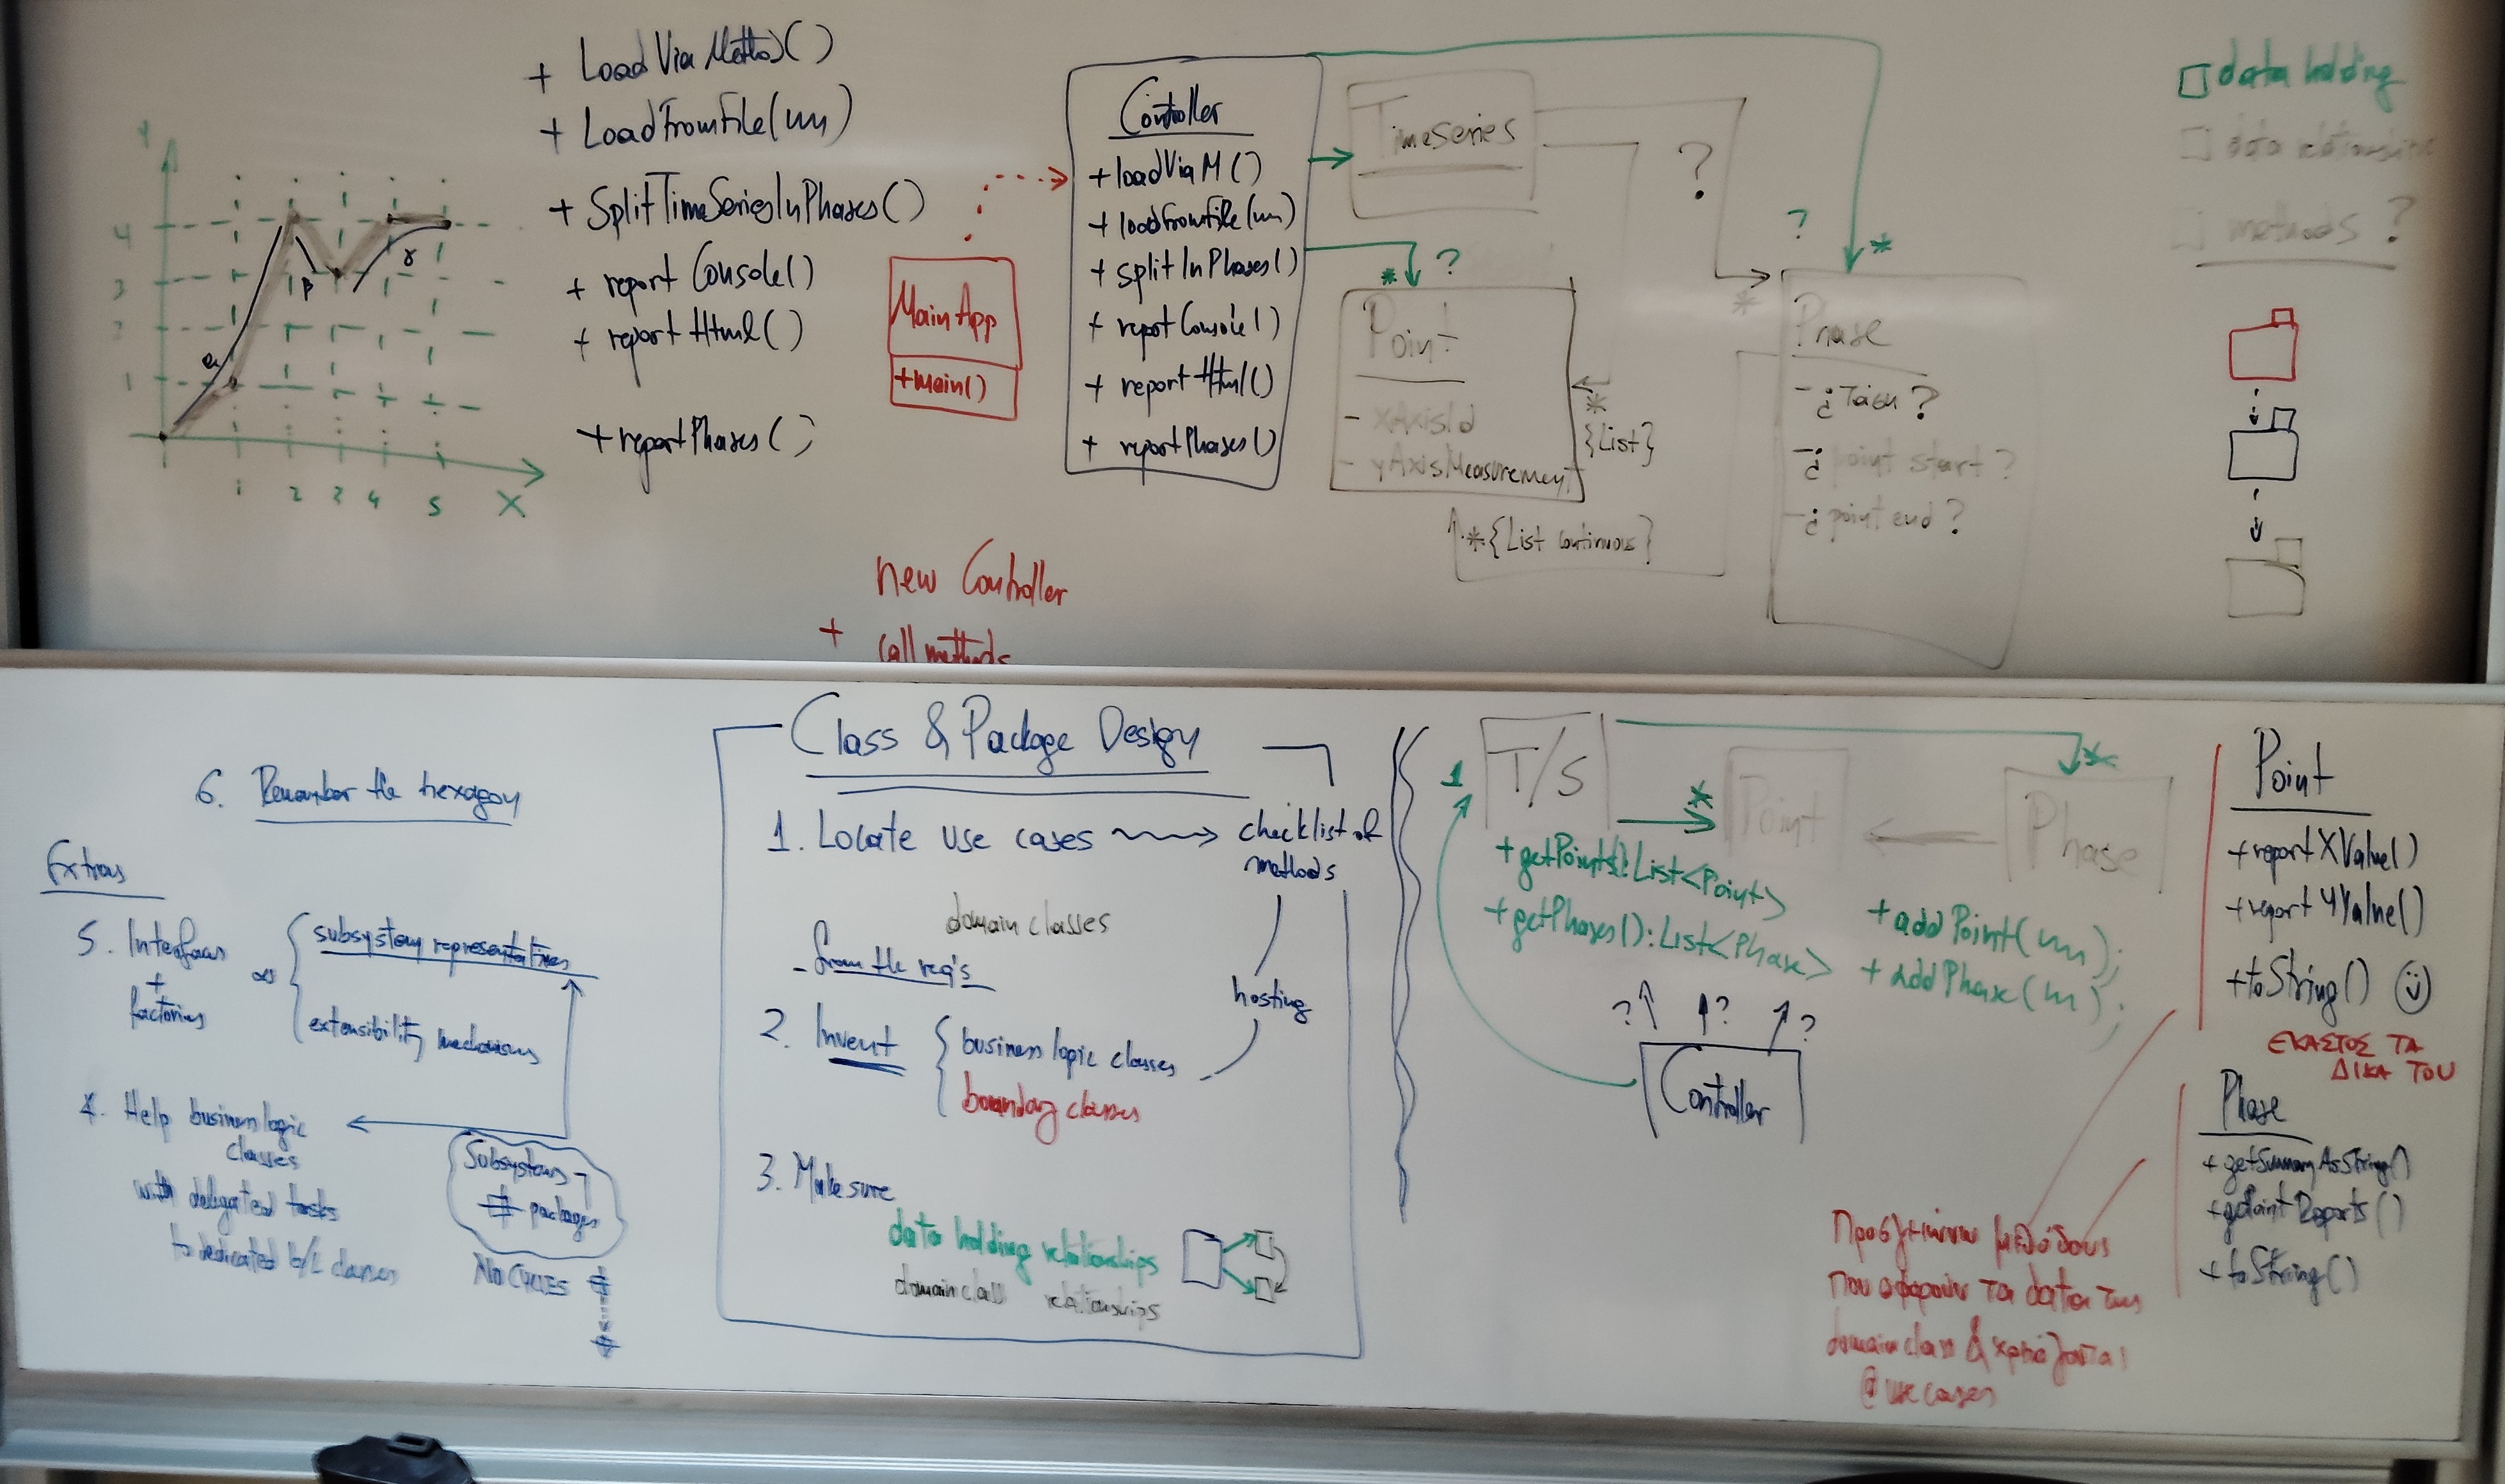 + LoadViaMethod()
+ LoadFromFile(nm)
+ SplitTimeSeriesInPhases()
+ reportConsole()
+ reportHtml()
+ reportPhases()
Y
4
3
2
1
α
β
γ
1 2 3 4 5 X
MainApp
+main()
new Controller
+ call methods
Controller
+loadViaM()
+loadFromFile(nm)
+ splitInPhases()
+ reportConsole()
+ reportHtml()
+ reportPhases()
TimeSeries
?
?
*
* ?
*
Point
- xAxisId
- yAxisMeasurement
*
{List}
*{List continuous}
Phase
-¿ Τάση ?
-¿ point start ?
-¿ point end ?
data holding
data relationships
methods ?
6. Remember the hexagon
Extras
5. Interfaces
+
factories
subsystem representatives
extensibility mechanisms
4. Help business logic
classes
with delegated tasks
to dedicated b/L classes
Subsystems →
packages
NO CYCLES
Class & Package Design
1. Locate use cases
checklist of
methods
domain classes
- from the req's
hosting
2. Invent
business logic classes
boundary classes
3. Make sure
data holding relationships
domain class relationships
1
T/S
*
Point
*
Phase
+getPoints(): List<Point>
+getPhases(): List<Phase>
+addPoint(nm);
+addPhase(m);
? ? ?
Controller
Point
+reportXValue()
+reportYValue()
+toString()
ΕΚΑΣΤΟΣ ΤΑ
ΔΙΚΑ ΤΟΥ
Phase
+getSummaryAsString()
+getPointReports()
+toString()
μεθόδους
που αφορούν τα data της
domain class & χρειάζονται
@ use cases